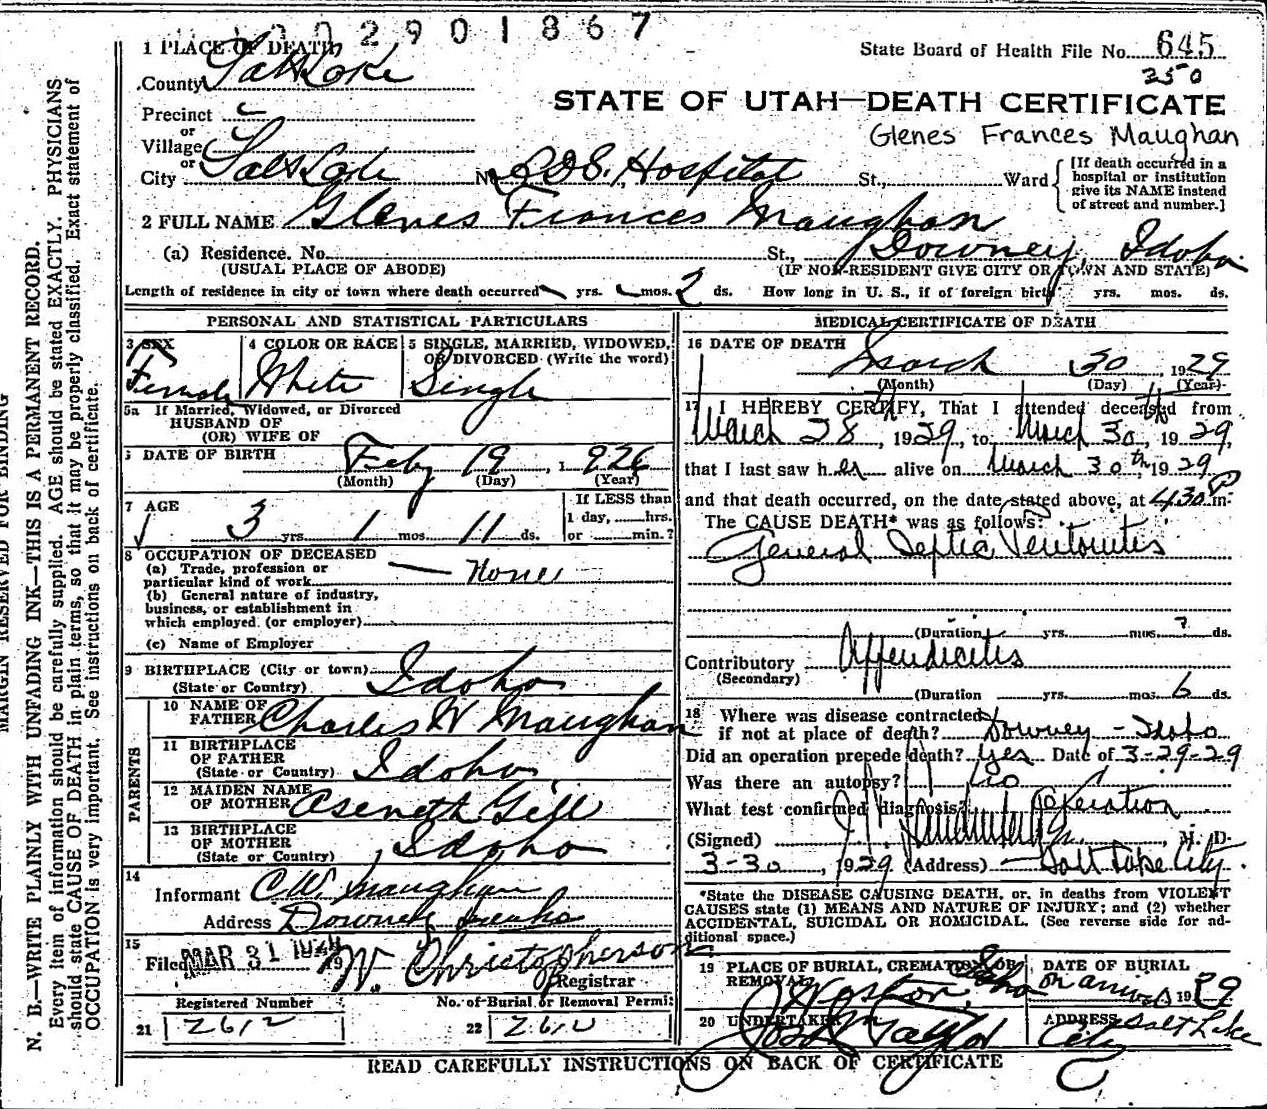 1002901867
1 PLACE OF DEATH
State Board of Health File No. 645
350
County Salt Lake
STATE OF UTAH—DEATH CERTIFICATE
Precinct
or
Glenes Frances Maughan
Village
or
City Salt Lake No. L D S. Hospital St., Ward
[If death occurred in a
hospital or institution
give its NAME instead
of street and number.]
2 FULL NAME Glenes Frances Maughan
(a) Residence. No. St., Downey, Idaho
(USUAL PLACE OF ABODE) (IF NON-RESIDENT GIVE CITY OR TOWN AND STATE)
Length of residence in city or town where death occurred yrs. mos. 2 ds. How long in U. S., if of foreign birth yrs. mos. ds.
PERSONAL AND STATISTICAL PARTICULARS
3 SEX 4 COLOR OR RACE 5 SINGLE, MARRIED, WIDOWED,
OR DIVORCED (Write the word)
Female White Single
5a If Married, Widowed, or Divorced
HUSBAND OF
(OR) WIFE OF
6 DATE OF BIRTH Feby 19, 1926
(Month) (Day) (Year)
7 AGE If LESS than
1 day, hrs.
3 yrs. 1 mos. 11 ds. or min.?
8 OCCUPATION OF DECEASED
(a) Trade, profession or
particular kind of work None
(b) General nature of industry,
business, or establishment in
which employed (or employer)
(c) Name of Employer
9 BIRTHPLACE (City or town)
(State or Country) Idaho
PARENTS
10 NAME OF
FATHER Charles W Maughan
11 BIRTHPLACE
OF FATHER
(State or Country) Idaho
12 MAIDEN NAME
OF MOTHER Aseneth Gill
13 BIRTHPLACE
OF MOTHER
(State or Country) Idaho
14
Informant C.W. Maughan
Address Downey Idaho
15
Filed MAR 31 1929 19 W. Christopherson
Registrar
Registered Number No. of Burial or Removal Permit
21 2612 22 2612
MEDICAL CERTIFICATE OF DEATH
16 DATE OF DEATH
March 30, 1929
(Month) (Day) (Year)
17 I HEREBY CERTIFY, That I attended deceased from
March 28th, 1929, to March 30th, 1929,
that I last saw her alive on March 30th, 1929
and that death occurred, on the date stated above, at 430 P m.
The CAUSE DEATH* was as follows:
General Septic Peritonitis
(Duration yrs. mos. ? ds.
Contributory Appendicitis
(Secondary)
(Duration yrs. mos. 6 ds.
18 Where was disease contracted
if not at place of death? Downey - Idaho
Did an operation precede death? Yes Date of 3-29-29
Was there an autopsy? No
What test confirmed diagnosis? Operation
(Signed) M. D.
3-30, 1929 (Address) Salt Lake City.
*State the DISEASE CAUSING DEATH, or, in deaths from VIOLENT
CAUSES state (1) MEANS AND NATURE OF INJURY; and (2) whether
ACCIDENTAL, SUICIDAL OR HOMICIDAL. (See reverse side for ad-
ditional space.)
19 PLACE OF BURIAL, CREMATION OR
REMOVAL Idaho
DATE OF BURIAL
1929
20 UNDERTAKER Taylor
ADDRESS Salt Lake
City
READ CAREFULLY INSTRUCTIONS ON BACK OF CERTIFICATE
MARGIN RESERVED FOR BINDING
N. B.—WRITE PLAINLY WITH UNFADING INK—THIS IS A PERMANENT RECORD.
Every item of information should be carefully supplied. AGE should be stated EXACTLY. PHYSICIANS
should state CAUSE OF DEATH in plain terms, so that it may be properly classified. Exact statement of
OCCUPATION is very important. See instructions on back of certificate.